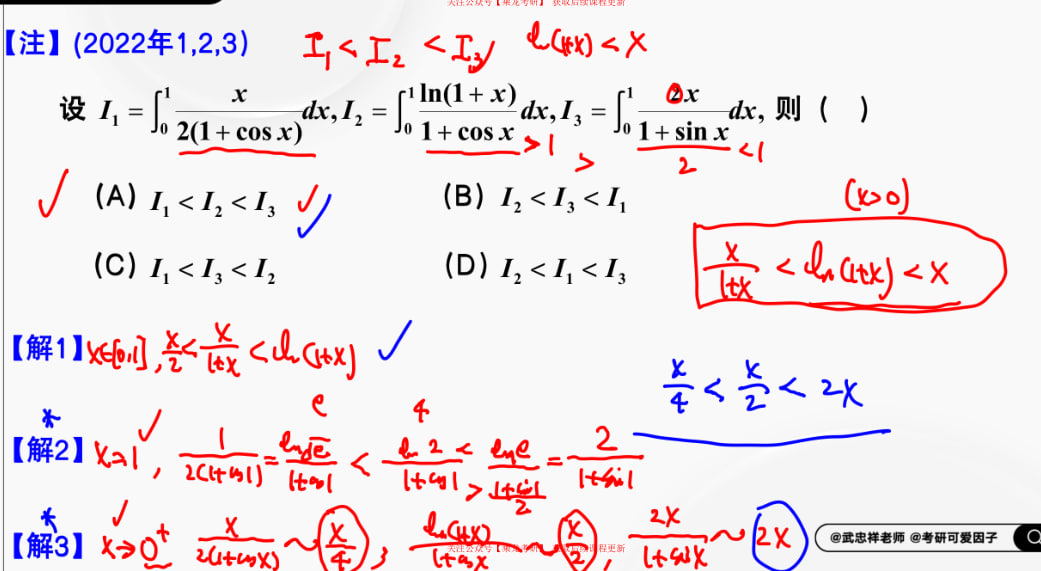 关注公众号【乘龙考研】 获取后续课程更新
【注】(2022年1,2,3) I₁ < I₂ < I₃ ln(1+x) < x
设 I₁ = ∫₀¹ x/(2(1+cos x)) dx, I₂ = ∫₀¹ ln(1+x)/(1+cos x) dx, I₃ = ∫₀¹ 2x/(1+sin x) dx, 则 ( )
>1 > 2 <1
(A) I₁ < I₂ < I₃ (B) I₂ < I₃ < I₁
(x>0)
(C) I₁ < I₃ < I₂ (D) I₂ < I₁ < I₃
x/(1+x) < ln(1+x) < x
【解1】x∈[0,1], x/2 < x/(1+x) < ln(1+x)
x/4 < x/2 < 2x
e 4
【解2】x→1, 1/(2(1+cos1)) = ln√e/(1+cos1) < ln2/(1+cos1) < lne/((1+sin1)/2) = 2/(1+sin1)
>
【解3】x→0⁺ x/(2(1+cosx)) ~ x/4, ln(1+x)/(1+cosx) ~ x/2, 2x/(1+sinx) ~ 2x
@武忠祥老师 @考研可爱因子
关注公众号【乘龙考研】 获取后续课程更新